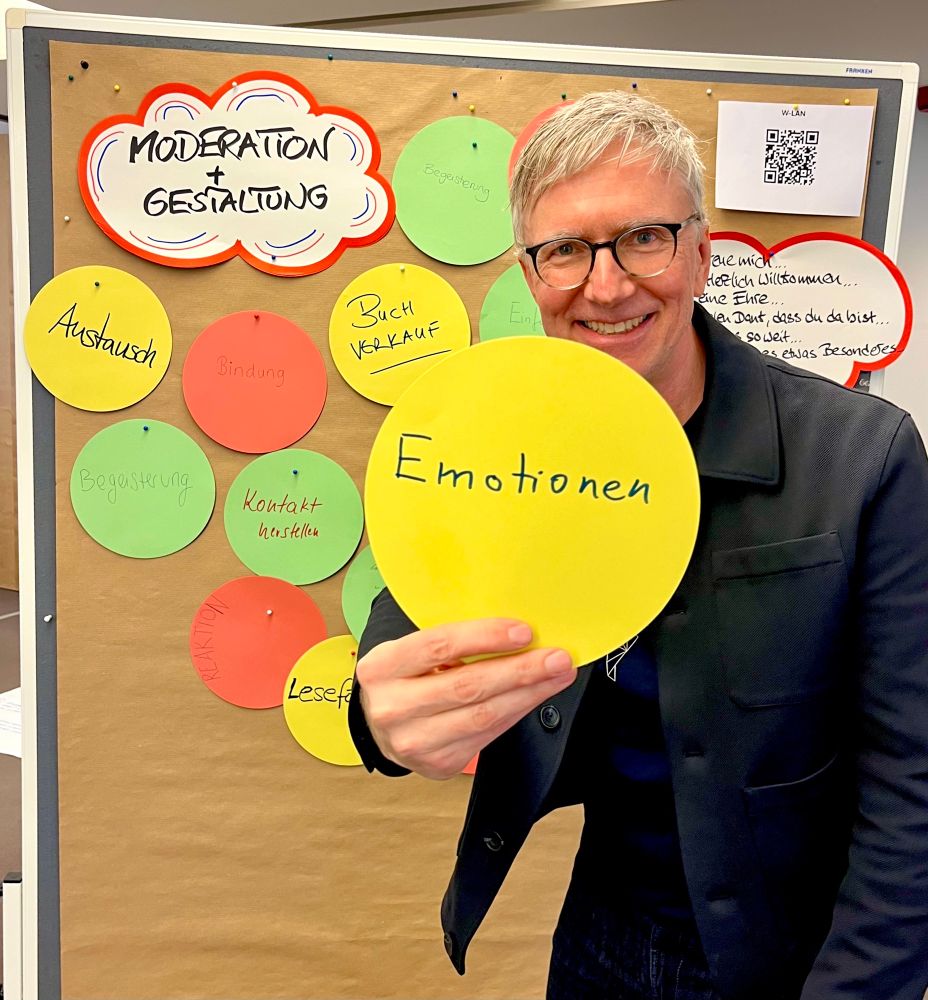 FRANKEN
W-LAN
MODERATION
+
GESTALTUNG
Begeisterung
mich...
Herzlich Willkommen...
eine Ehre...
Dank, dass du da bist...
so weit...
es etwas Besonderes
Austausch
Bindung
BUCH
VERKAUF
Begeisterung
Kontakt
herstellen
Emotionen
REAKTION